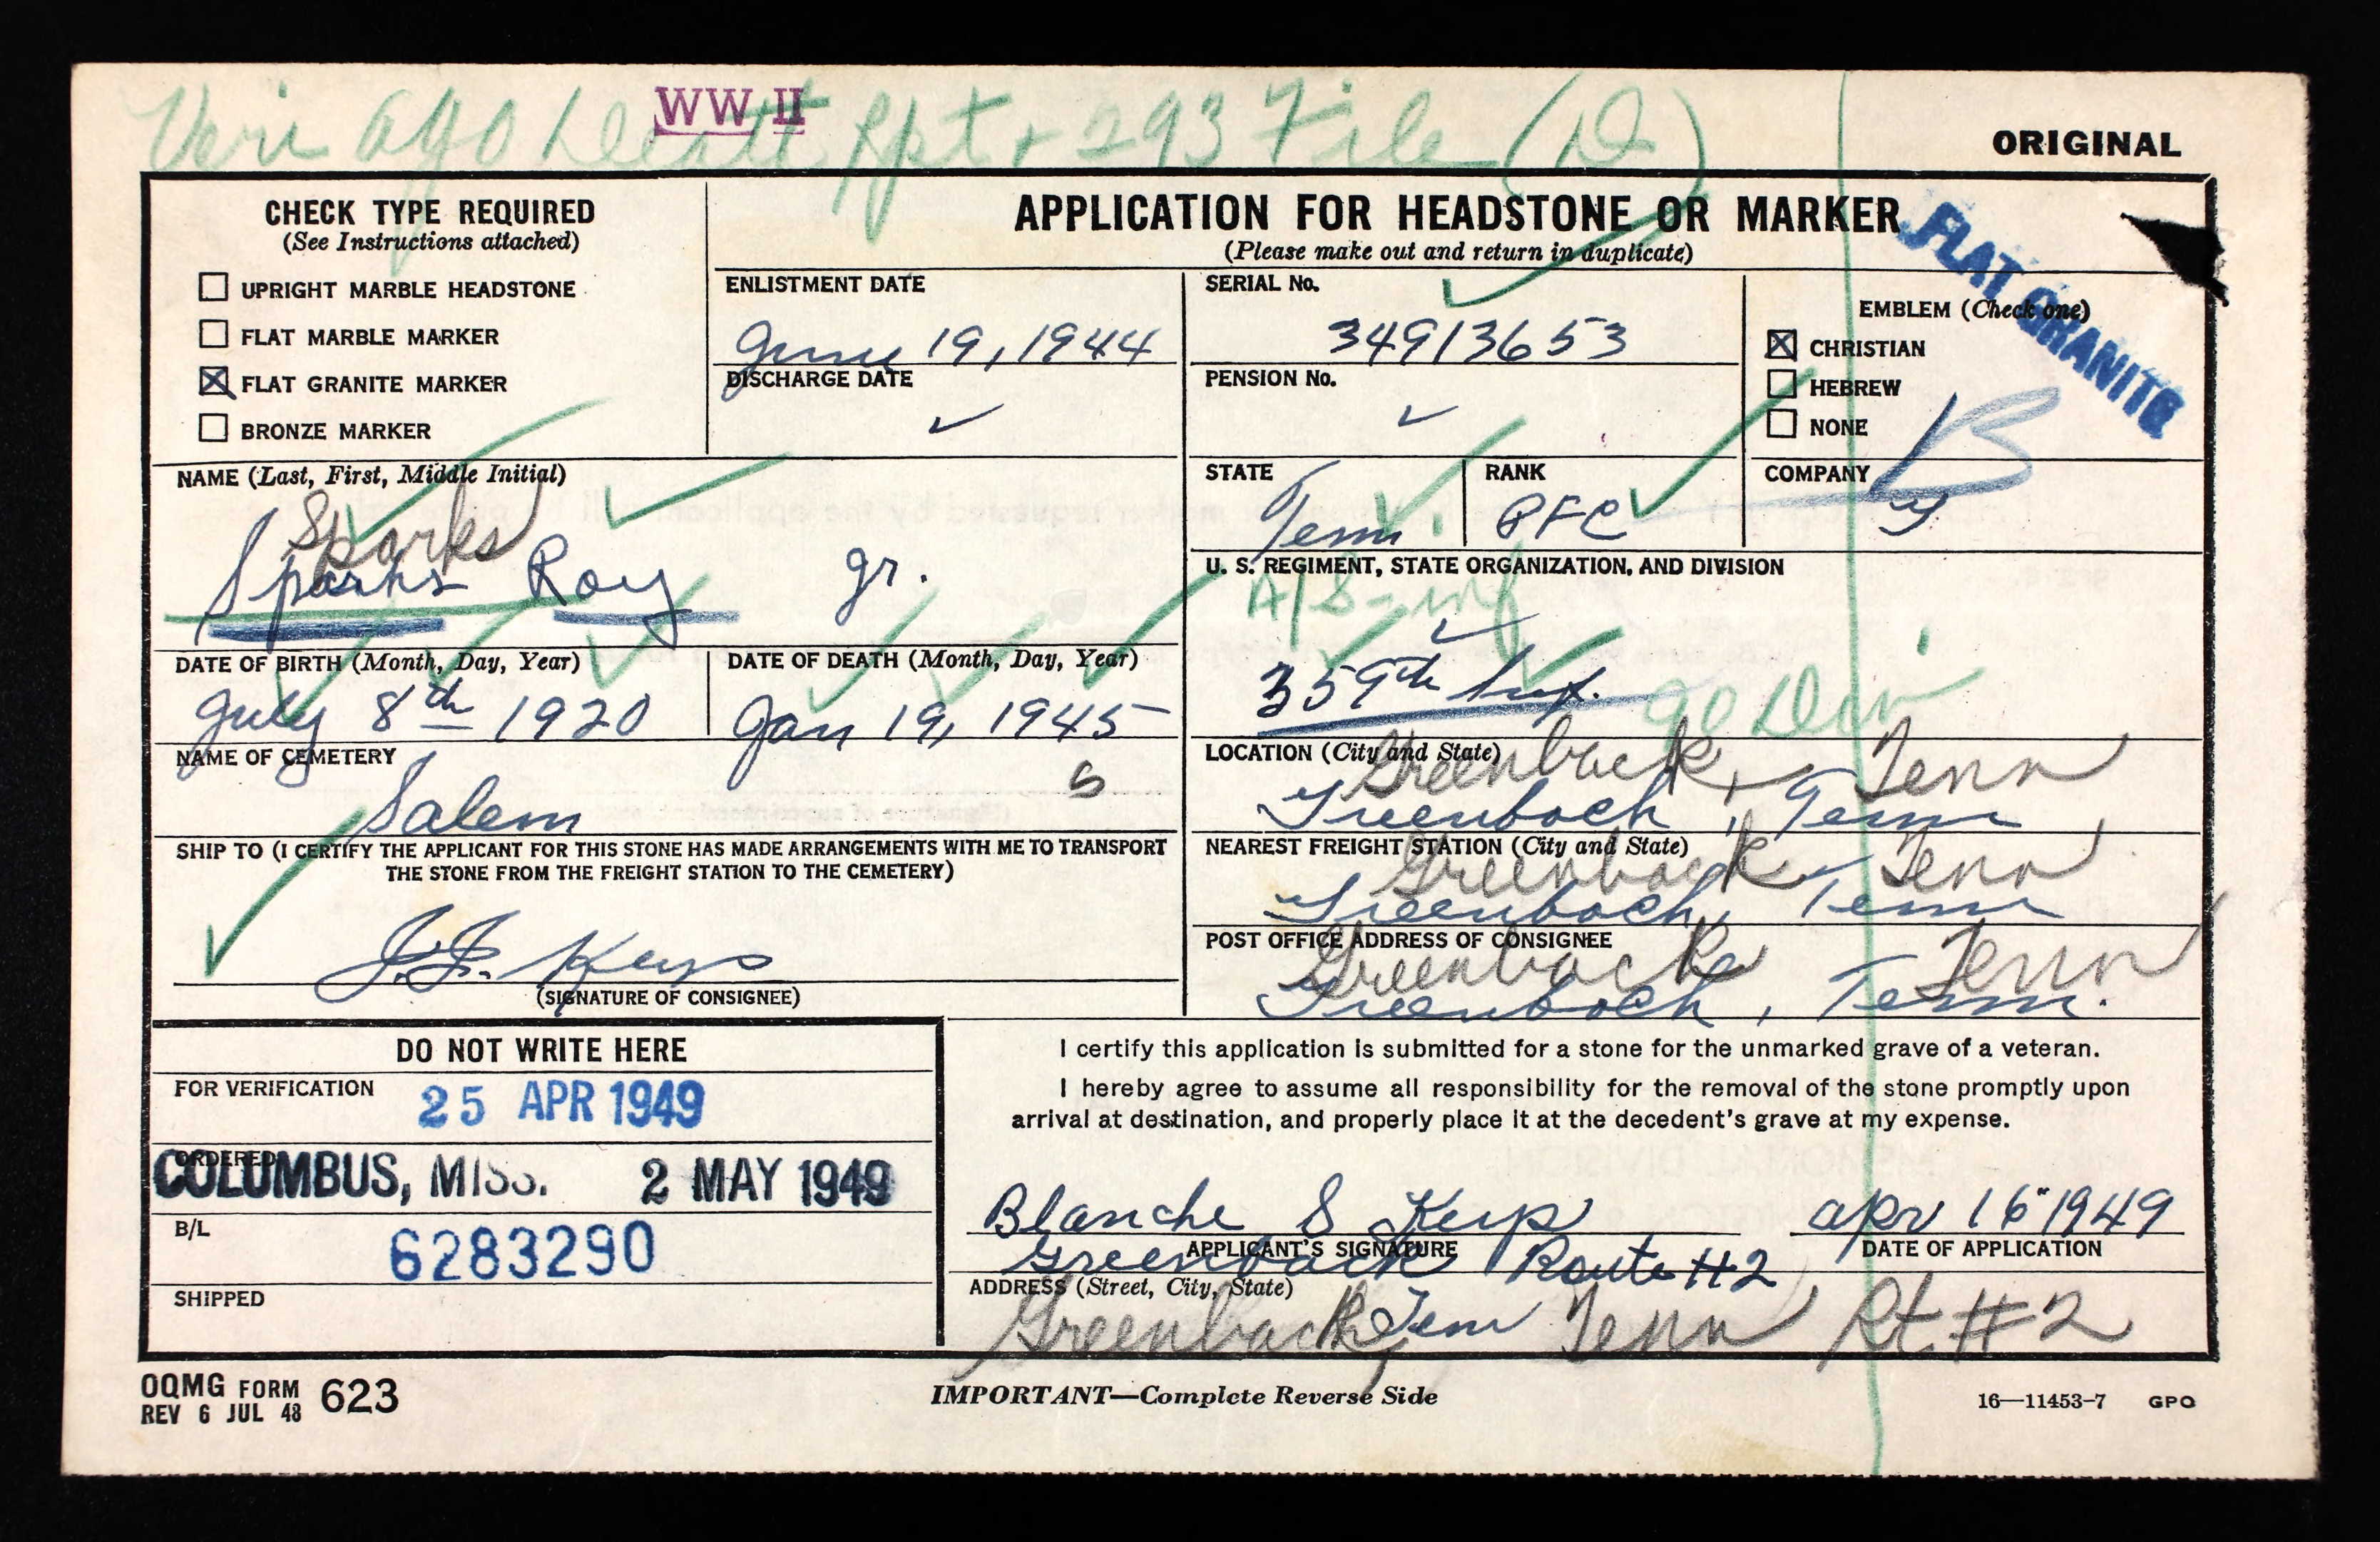 Veri AGO Death Rpt + 293 File (D)
WW II
ORIGINAL
CHECK TYPE REQUIRED
(See Instructions attached)
UPRIGHT MARBLE HEADSTONE
FLAT MARBLE MARKER
FLAT GRANITE MARKER
BRONZE MARKER
APPLICATION FOR HEADSTONE OR MARKER
(Please make out and return in duplicate)
FLAT GRANITE
ENLISTMENT DATE
June 19, 1944
DISCHARGE DATE
SERIAL No.
34913653
PENSION No.
EMBLEM (Check one)
CHRISTIAN
HEBREW
NONE
B
NAME (Last, First, Middle Initial)
Sparks
Sparks Roy Jr.
STATE
Tenn.
RANK
PFC
COMPANY
U. S. REGIMENT, STATE ORGANIZATION, AND DIVISION
359th Inf. 90 Div
DATE OF BIRTH (Month, Day, Year)
July 8th 1920
DATE OF DEATH (Month, Day, Year)
Jan 19, 1945
5
NAME OF CEMETERY
Salem
LOCATION (City and State)
Greenback, Tenn
Greenback, Tenn
SHIP TO (I CERTIFY THE APPLICANT FOR THIS STONE HAS MADE ARRANGEMENTS WITH ME TO TRANSPORT
THE STONE FROM THE FREIGHT STATION TO THE CEMETERY)
J.J. Keys
(SIGNATURE OF CONSIGNEE)
NEAREST FREIGHT STATION (City and State)
Greenback, Tenn
Greenback, Tenn
POST OFFICE ADDRESS OF CONSIGNEE
Greenback Tenn
Greenback, Tenn.
DO NOT WRITE HERE
FOR VERIFICATION
25 APR 1949
ORDERED
COLUMBUS, MISS. 2 MAY 1949
B/L
6283290
SHIPPED
I certify this application is submitted for a stone for the unmarked grave of a veteran.
I hereby agree to assume all responsibility for the removal of the stone promptly upon
arrival at destination, and properly place it at the decedent's grave at my expense.
Blanche S Keys
APPLICANT'S SIGNATURE
Apr 16" 1949
DATE OF APPLICATION
Greenback Route #2
ADDRESS (Street, City, State)
Tenn
Greenback, Tenn Rt. #2
OQMG FORM 623
REV 6 JUL 48
IMPORTANT—Complete Reverse Side
16—11453-7 GPO